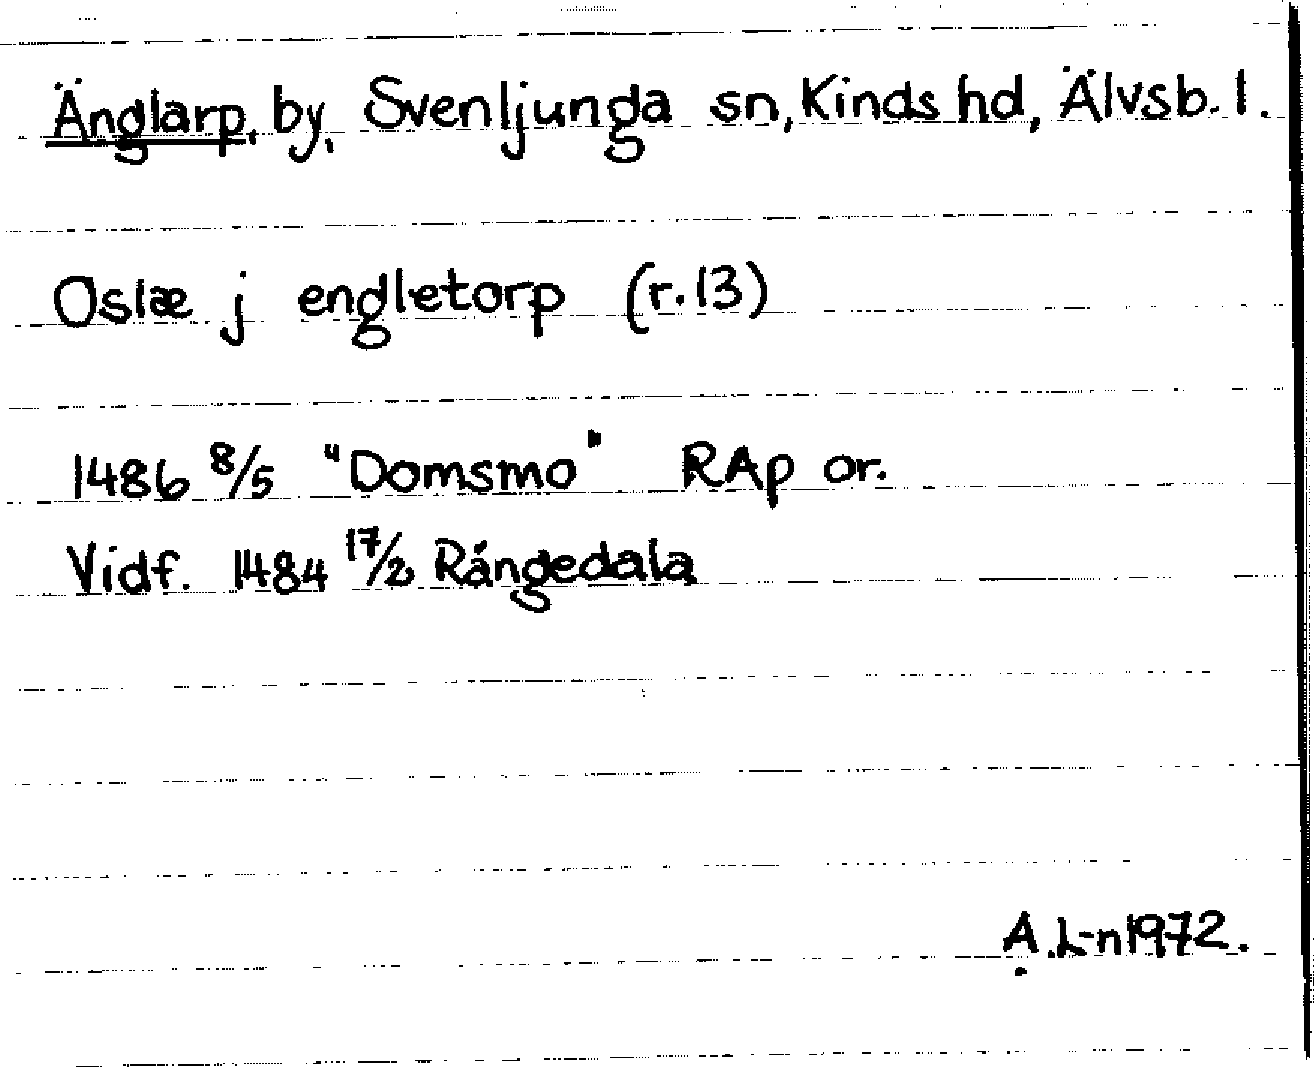 Änglarp, by, Svenljunga sn, Kinds hd, Älvsb. l.
Oslæ j engletorp (r. 13)
1486 8/5 "Domsmo" RAp or.
Vidf. 1484 17/2 Rångedala
A.L-n 1972.